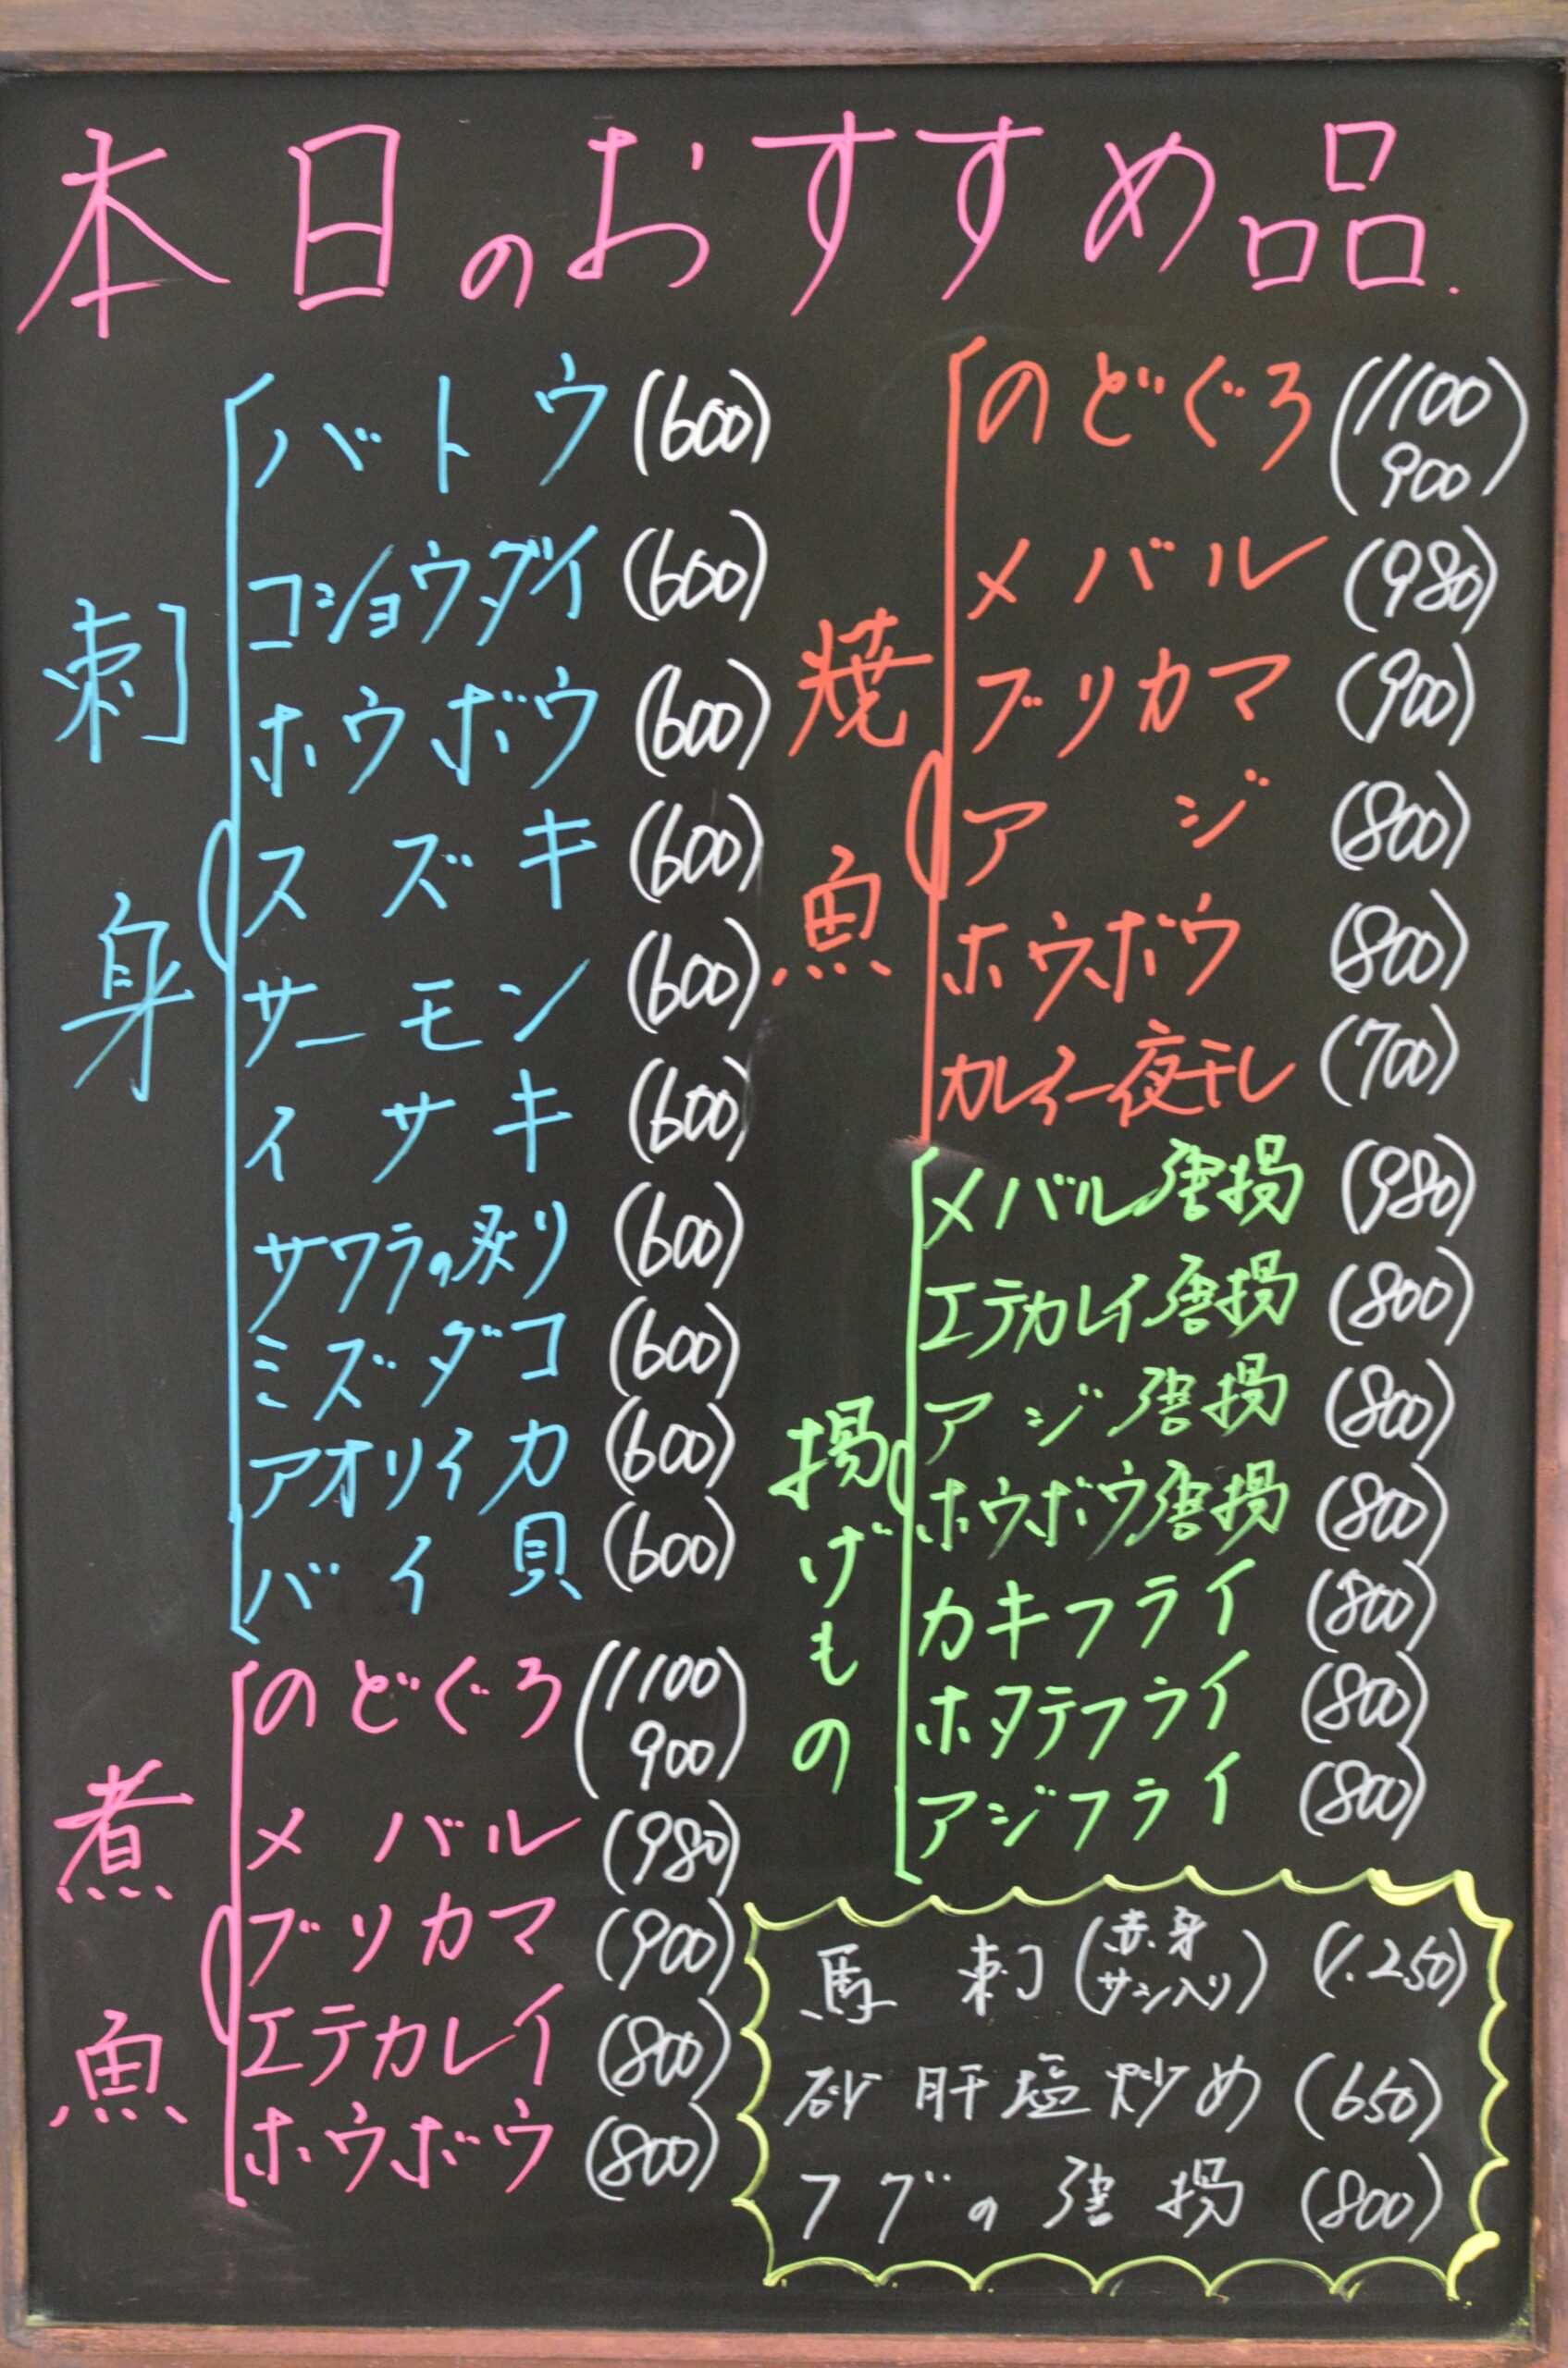 本日のおすすめ品.
刺身
バトウ (600)
コショウダイ (600)
ホウボウ (600)
スズキ (600)
サーモン (600)
イサキ (600)
サワラの炙り (600)
ミズダコ (600)
アオリイカ (600)
バイ貝 (600)
煮魚
のどぐろ (1100
900)
メバル (980)
ブリカマ (900)
エテカレイ (800)
ホウボウ (800)
焼魚
のどぐろ (1100
900)
メバル (980)
ブリカマ (900)
アジ (800)
ホウボウ (800)
カレイ一夜干し (700)
揚げもの
メバル唐揚 (980)
エテカレイ唐揚 (800)
アジ唐揚 (800)
ホウボウ唐揚 (800)
カキフライ (800)
ホタテフライ (800)
アジフライ (800)
馬刺 (赤身
サシ入り) (1.250)
砂肝塩炒め (650)
フグの唐揚 (800)